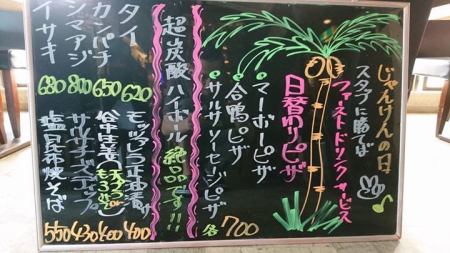 じゃんけんの日
スタッフに勝てば
ファーストドリンクサービス
日替りピザ
・マーボーピザ
・合鴨ピザ
・サルサソーセージピザ
各700
超炭酸ハイボール絶品です!!
タイ 620
カンパチ 650
シマアジ 800
イサキ 680
400
谷中生姜 400
サルサチーズディップ 430
塩昆布焼そば 550